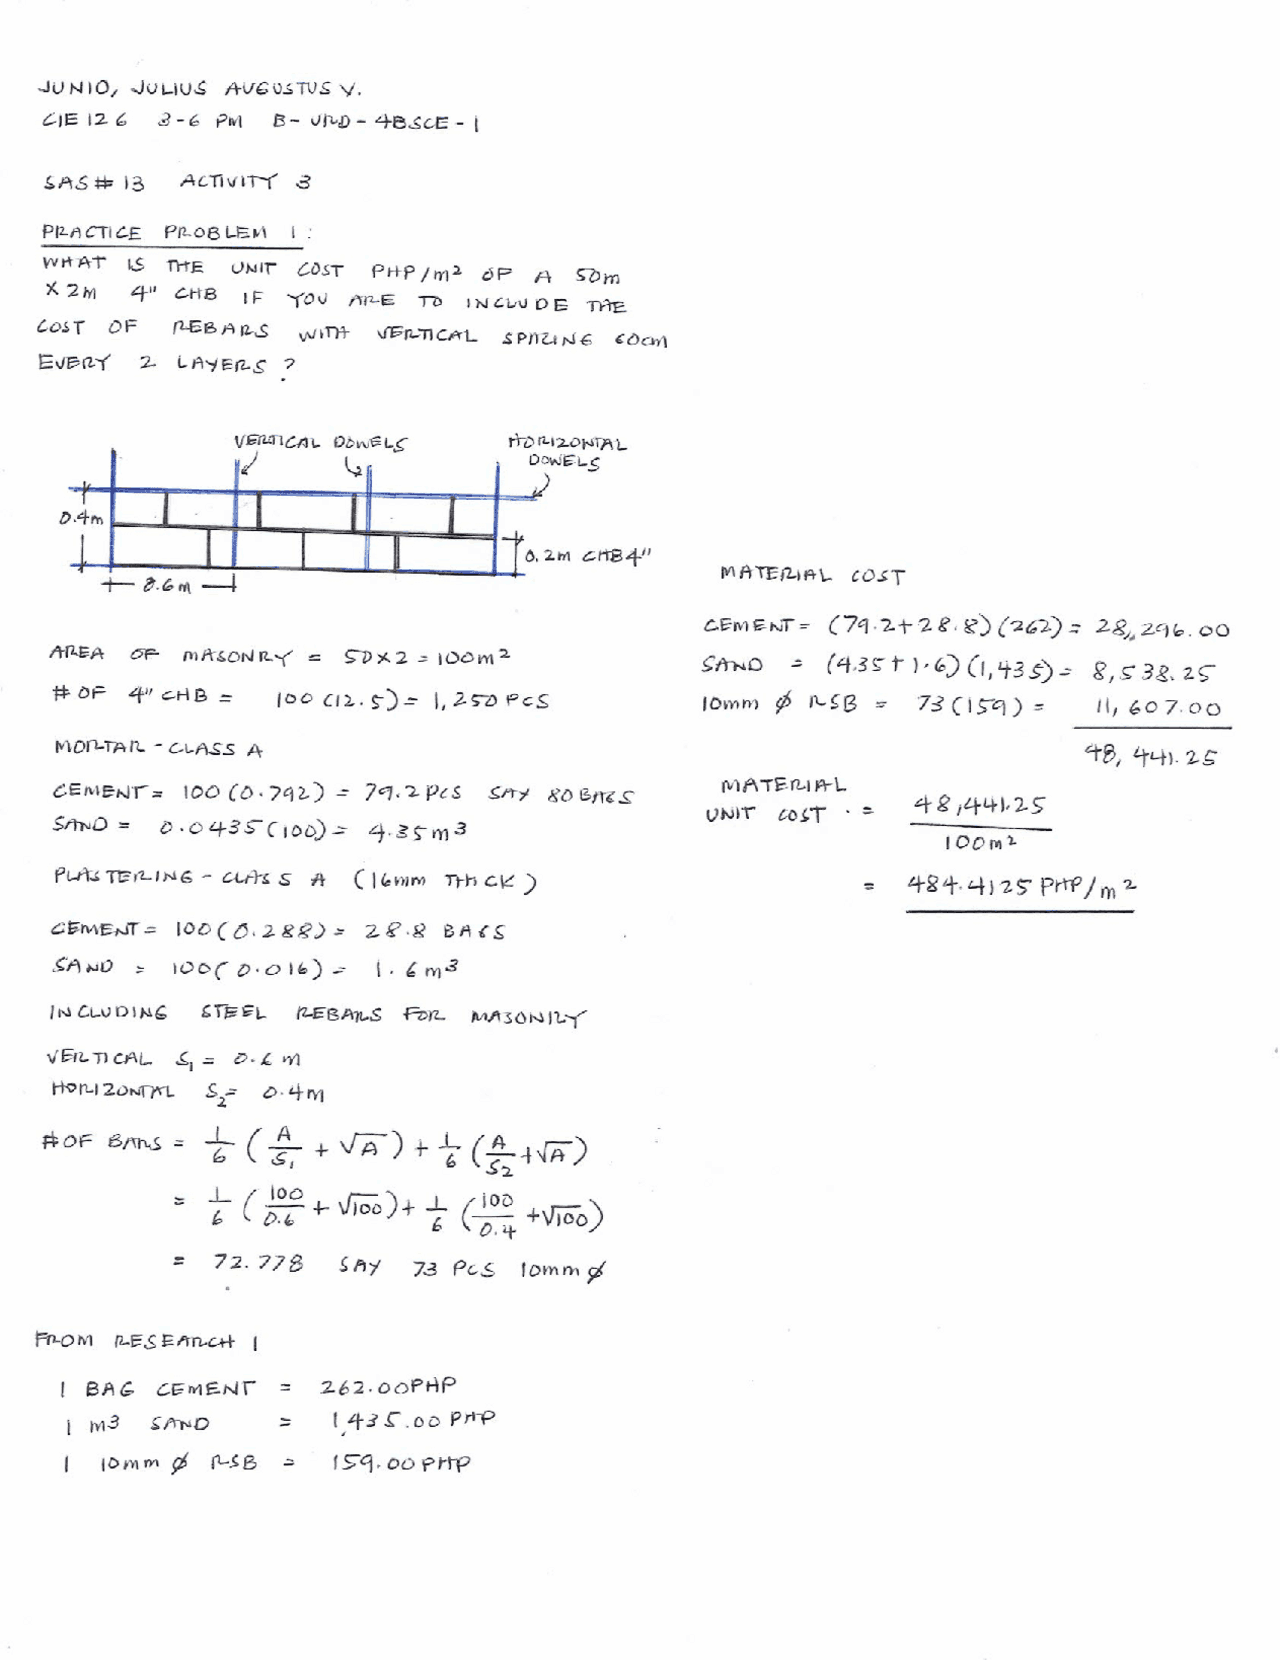 JUNIO, JULIUS AUGUSTUS V.
CIE 126 3-6 PM B-URD-4BSCE-1
SAS# 13 ACTIVITY 3
PRACTICE PROBLEM 1:
WHAT IS THE UNIT COST PHP/m² OF A 50m
X 2M 4" CHB IF YOU ARE TO INCLUDE THE
COST OF REBARS WITH VERTICAL SPACING 60cm
EVERY 2 LAYERS?
VERTICAL DOWELS
HORIZONTAL
DOWELS
0.4m
0.2m CHB 4"
0.6m
AREA OF MASONRY = 50X2 = 100m²
# OF 4" CHB = 100 (12.5) = 1,250 PCS
MORTAR - CLASS A
CEMENT = 100 (0.792) = 79.2 PCS SAY 80 BAGS
SAND = 0.0435 (100) = 4.35 m³
PLASTERING - CLASS A (16mm THICK)
CEMENT = 100 (0.288) = 28.8 BAGS
SAND = 100 (0.016) = 1.6 m³
INCLUDING STEEL REBARS FOR MASONRY
VERTICAL S₁ = 0.6 m
HORIZONTAL S₂ = 0.4m
# OF BARS = 1/6 (A/S₁ + √A) + 1/6 (A/S₂ + √A)
= 1/6 (100/0.6 + √100) + 1/6 (100/0.4 + √100)
= 72.778 SAY 73 PCS 10mm ϕ
FROM RESEARCH 1
1 BAG CEMENT = 262.00PHP
1 m³ SAND = 1,435.00 PHP
1 10mm ϕ RSB = 159.00 PHP
MATERIAL COST
CEMENT = (79.2+28.8)(262) = 28,296.00
SAND = (4.35+1.6)(1,435) = 8,538.25
10mm ϕ RSB = 73(159) = 11,607.00
48,441.25
MATERIAL
UNIT COST = 48,441.25 / 100m²
= 484.4125 PHP/m²